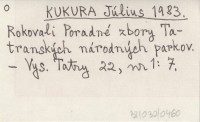 o
KUKURA Július 1983.
Rokovali Poradné zbory Ta-
tranských národných parkov.
– Vys. Tatry 22, nr 1: 7.